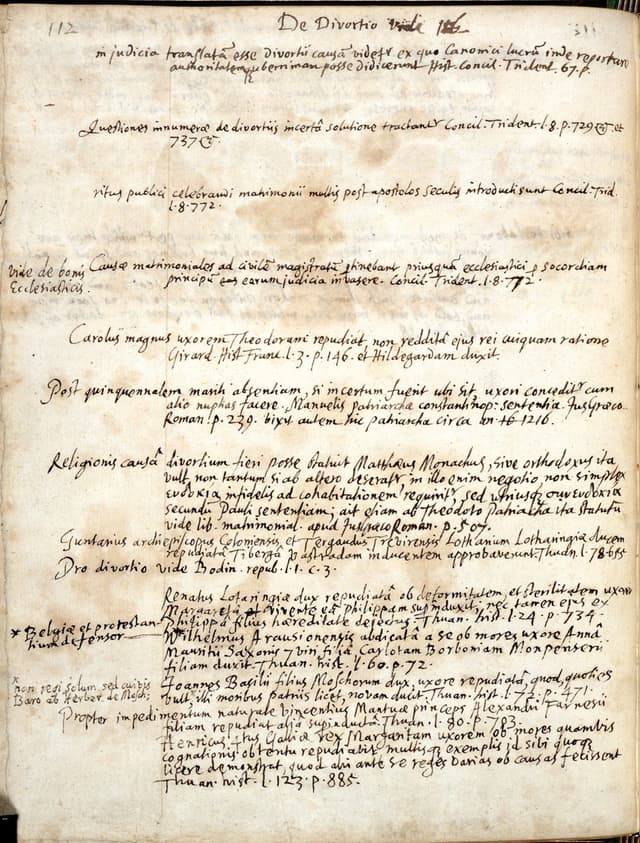 112
De Divortio vide
in judicia translatā esse divortii causā videtr ex quo Canonici lucrū inde reportare
authoritatem uberrimam posse didicerunt Hist. Concil. Trident. 67. p.
Quæstiones innumeræ de divortiis incertâ solutione tractantr Concil. Trident. l. 8. p. 729 et
737
ritus publici celebrandi matrimonii multis post apostolos seculis introducti sunt Concil. Trid.
l. 8. 772.
vide de bonis
Ecclesiasticis.
Causæ matrimoniales ad civilē magistratū ptinebant priusquā ecclesiastici p socordiam
principū eas earum judicia invasere. Concil. Trident. l. 8. 772.
Carolus magnus uxorem Theodoram repudiat, non redditâ ejus rei cuiquam ratione
Girard. Hist. Franc. l. 3. p. 146. et Hildegardam duxit
Post quinquennalem mariti absentiam, si incertum fuerit ubi sit, uxori conceditr cum
alio nuptias facere. Manuelis patriarchæ constantinop: sententia. Jus Græco-
Roman. p. 239. vixit autem hic Patriarcha circa an 1216.
Religionis causâ divortium fieri posse statuit Matthæus Monachus, sive orthodoxus ita
vult, non tantum si ab altero deseratr, in illo enim negotio, non simplex
ευδοκια infidelis ad cohabitationem requiritr, sed utriusq συνευδοκια
secundū Pauli sententiam; ait etiam ab Theodoto Patriarcha ita statutū
vide lib. matrimonial. apud Jus græco Roman. p. 507.
Guntarius archiepiscopus Coloniensis, et Tergaudus Trevirensis Lotharium Lotharingiæ ducem
repudiatâ Tibergâ Vastradam inducentem approbaverunt. Thuan. l. 78.
Pro divortio vide Bodin. repub. l. 1. c. 3.
Renatus Lotaringiæ dux repudiatâ ob deformitatem, et sterilitatem uxore
Margaretâ et vivente eâ Philippam supinduxit, nec tamen ejus ex
Philippâ filius hæreditate dejectus. Thuan. hist. l. 24. p. 734.
* Belgiæ et protestan-
tium defensor
Wilhelmus Arausionensis abdicatâ a se ob mores uxore Annâ
Mauritii Saxonis 7 viri filiâ, Carlotam Borboniam Monpenserii
filiam duxit. Thuan. hist. l. 60. p. 72.
* non regi solum, sed cuivis
Baro ab Herber. de Mosch:
Joannes Basilii filius Moschorum dux, uxore repudiatâ, quod, quoties
vult, illi moribus patriis licet, novam ducit. Thuan. hist. l. 72. p. 471.
Propter impedimentum naturale Vincentius Mantuæ princeps Alexandri Farnesii
filiam repudiat aliâ supinductâ. Thuan. l. 80. p. 703.
Henricus 4tus Galliæ rex Margaritam uxorem ob mores quamvis
cognationis obtentu repudiavit multisq exemplis id sibi quoq
licere demonstrat, quod ali ante se reges varias ob causas fecissent
Thuan. hist. l. 123. p. 885.